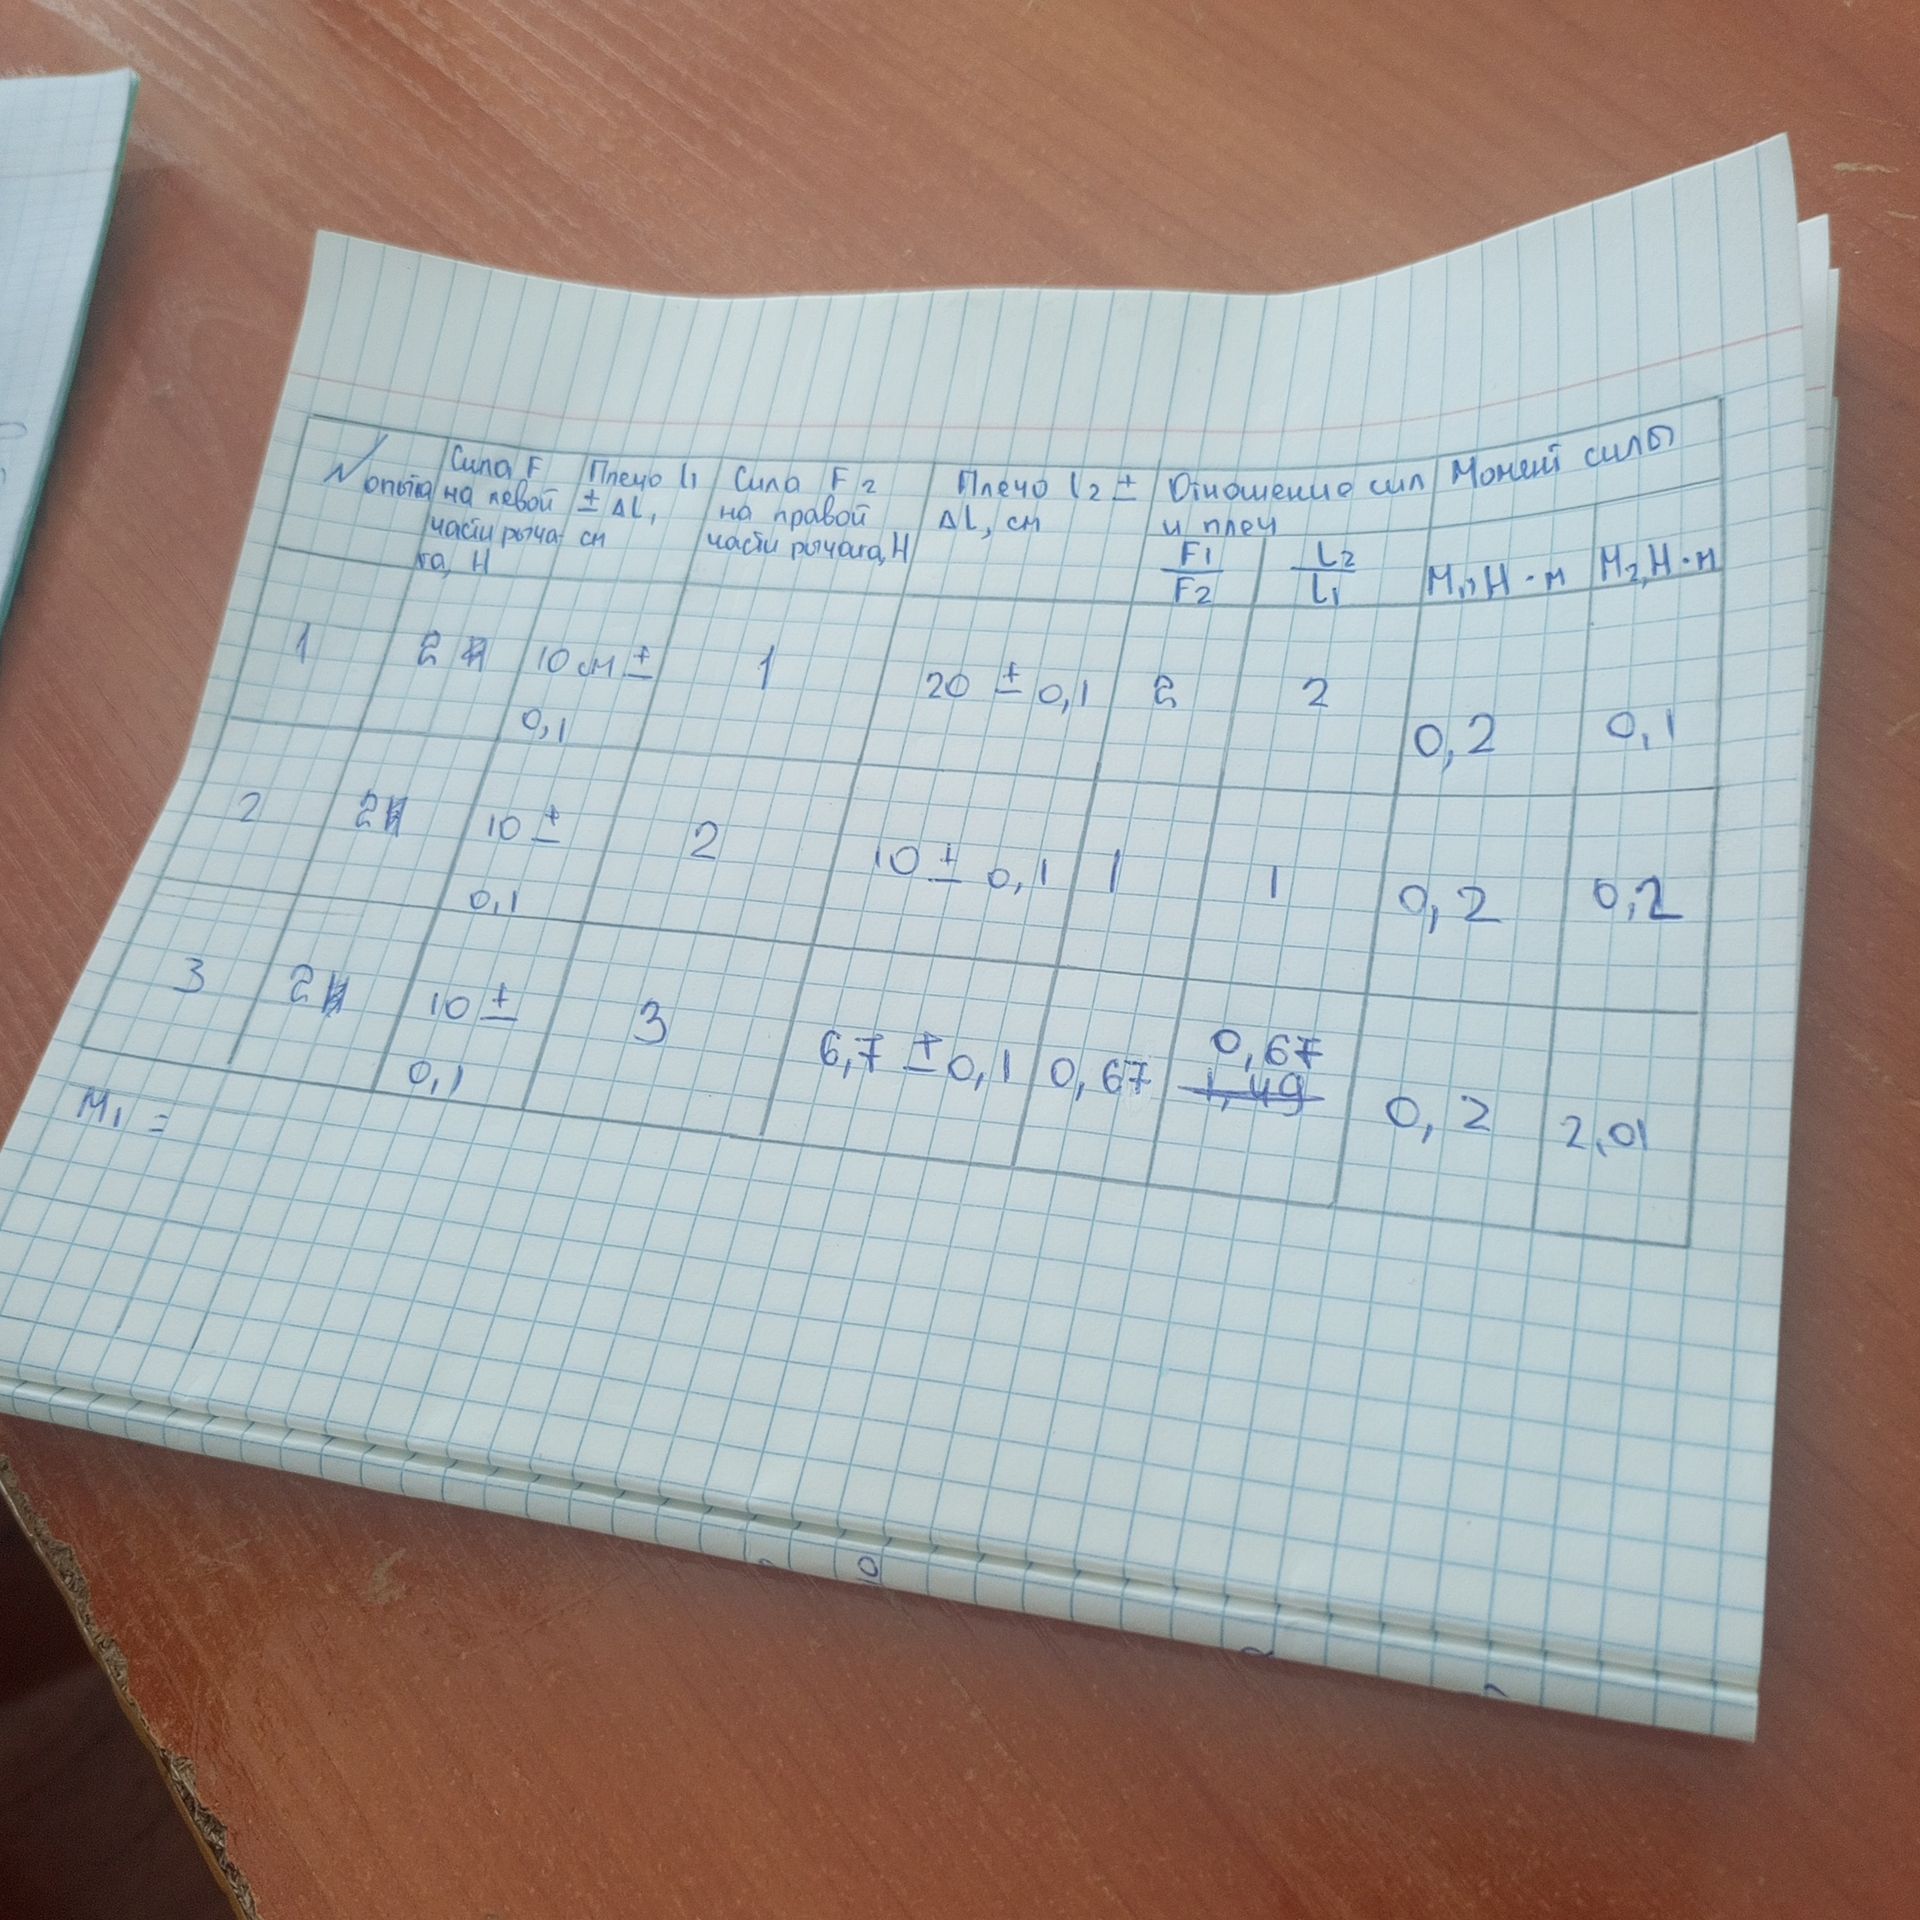 № опыта
Сила F
на левой
части рыча-
га, Н
Плечо l₁
± Δl,
см
Сила F₂
на правой
части рычага, Н
Плечо l₂ ±
Δl, см
Отношение сил
и плеч
F₁
F₂
L₂
l₁
Момент силы
M₁, Н·м
M₂, Н·м
1 2 10 см ± 0,1 1 20 ± 0,1 2 2 0,2 0,1
2 2 10 ± 0,1 2 10 ± 0,1 1 1 0,2 0,2
3 2 10 ± 0,1 3 6,7 ± 0,1 0,67 0,67 0,2 2,01
1,49
M₁ =